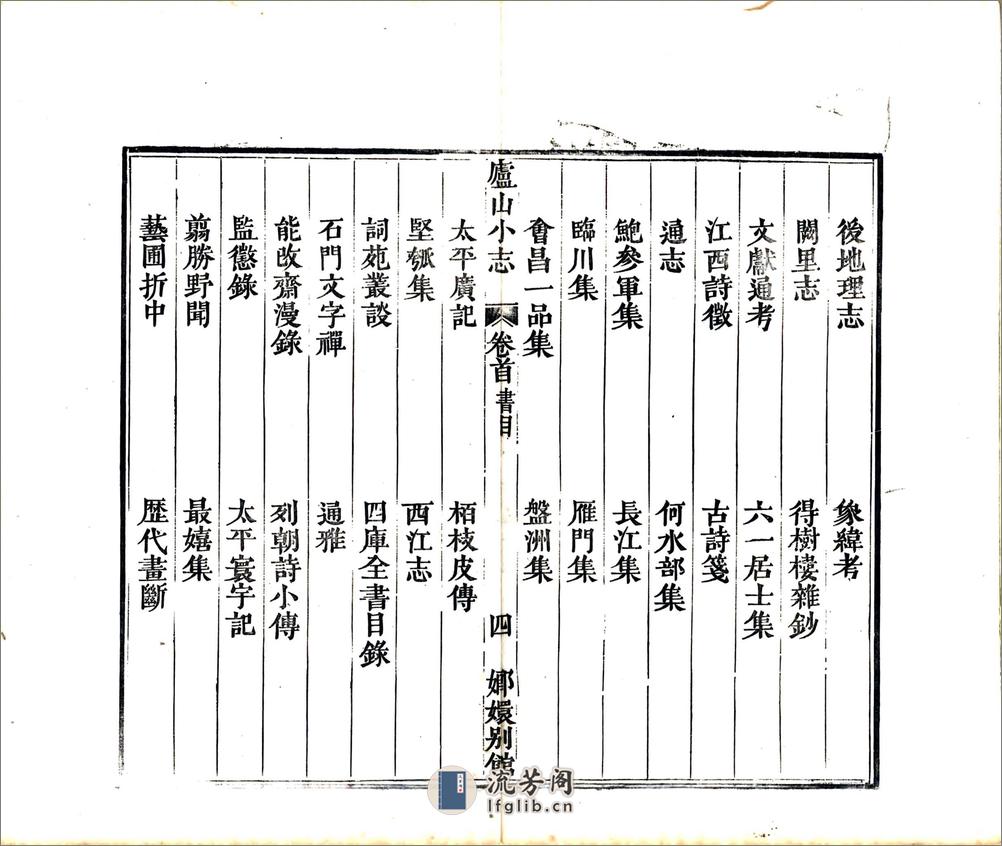 後地理志　象緯考
闕里志　得樹樓雜鈔
文獻通考　六一居士集
江西詩徵　古詩箋
通志　何水部集
鮑參軍集　長江集
臨川集　雁門集
會昌一品集　盤洲集
廬山小志　卷首書目　四　嫏嬛别館
太平廣記　栢枝皮傳
堅瓠集　西江志
詞苑叢談　四庫全書目錄
石門文字禪　通雅
能改齋漫錄　列朝詩小傳
監懲錄　太平寰宇記
翦勝野聞　最嬉集
藝圃折中　歷代畫斷
流芳阁
lfglib.cn